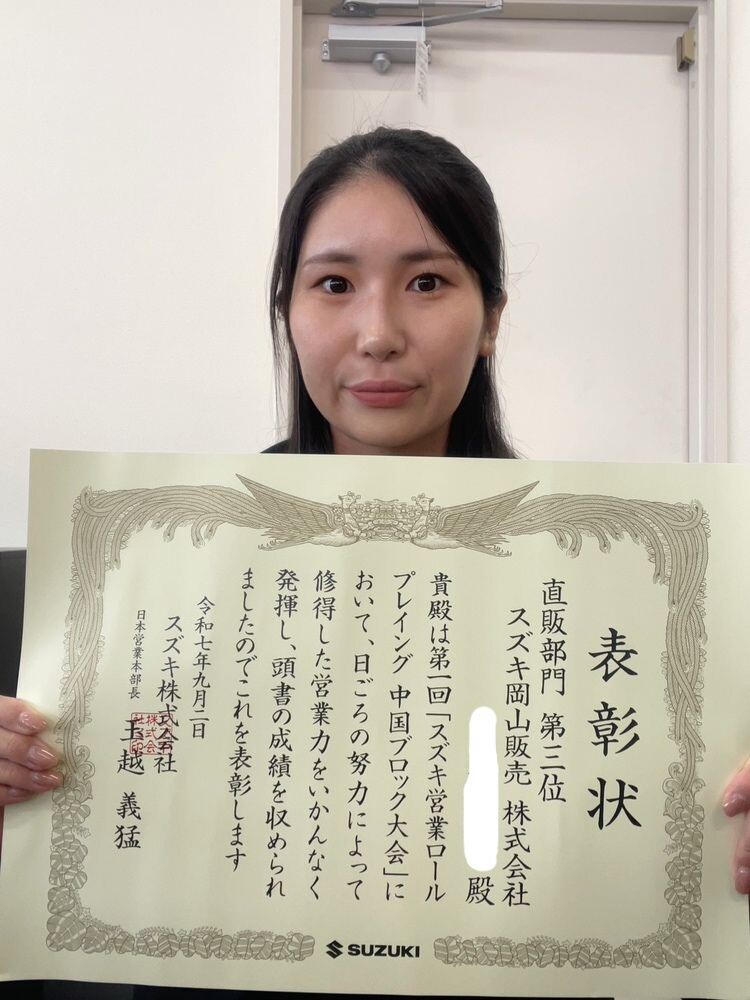 表彰状
直販部門 第三位
スズキ岡山販売 株式会社
殿
貴殿は第一回「スズキ営業ロール
プレイング 中国ブロック大会」に
おいて、日ごろの努力によって
修得した営業力をいかんなく
発揮し、頭書の成績を収められ
ましたのでこれを表彰します
令和七年九月二日
スズキ株式会社
日本営業本部長 玉越 義猛
SUZUKI